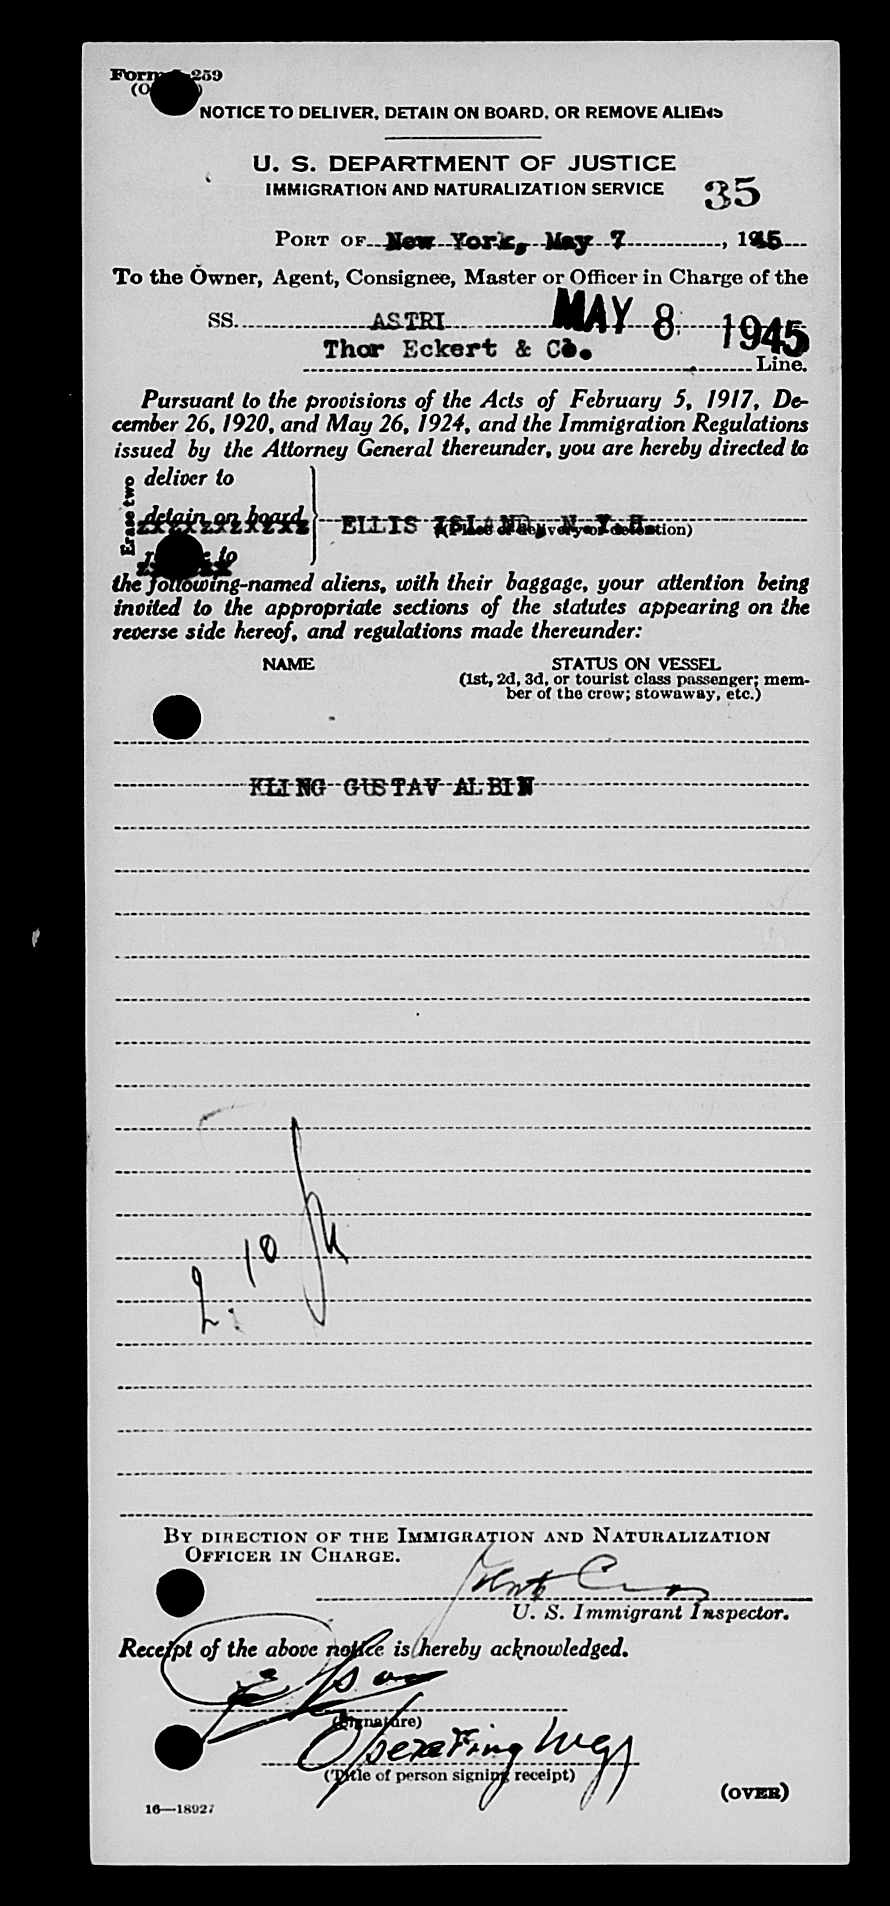 Form 259
NOTICE TO DELIVER, DETAIN ON BOARD, OR REMOVE ALIENS
U. S. DEPARTMENT OF JUSTICE
IMMIGRATION AND NATURALIZATION SERVICE
35
PORT OF New York, May 7, 1945
To the Owner, Agent, Consignee, Master or Officer in Charge of the
SS. ASTRI MAY 8 1945
Thor Eckert & Co.
Line.
Pursuant to the provisions of the Acts of February 5, 1917, De-
cember 26, 1920, and May 26, 1924, and the Immigration Regulations
issued by the Attorney General thereunder, you are hereby directed to
Erase two
deliver to
detain on board
ELLIS ISLAND, N.Y.H.
(Place of delivery or detention)
to
the following-named aliens, with their baggage, your attention being
invited to the appropriate sections of the statutes appearing on the
reverse side hereof, and regulations made thereunder:
NAME STATUS ON VESSEL
(1st, 2d, 3d, or tourist class passenger; mem-
ber of the crew; stowaway, etc.)
KLING GUSTAV ALBIN
2. 10
BY DIRECTION OF THE IMMIGRATION AND NATURALIZATION
OFFICER IN CHARGE.
U. S. Immigrant Inspector.
Receipt of the above notice is hereby acknowledged.
(Signature)
Operating Mgr
(Title of person signing receipt)
(OVER)
16—18927